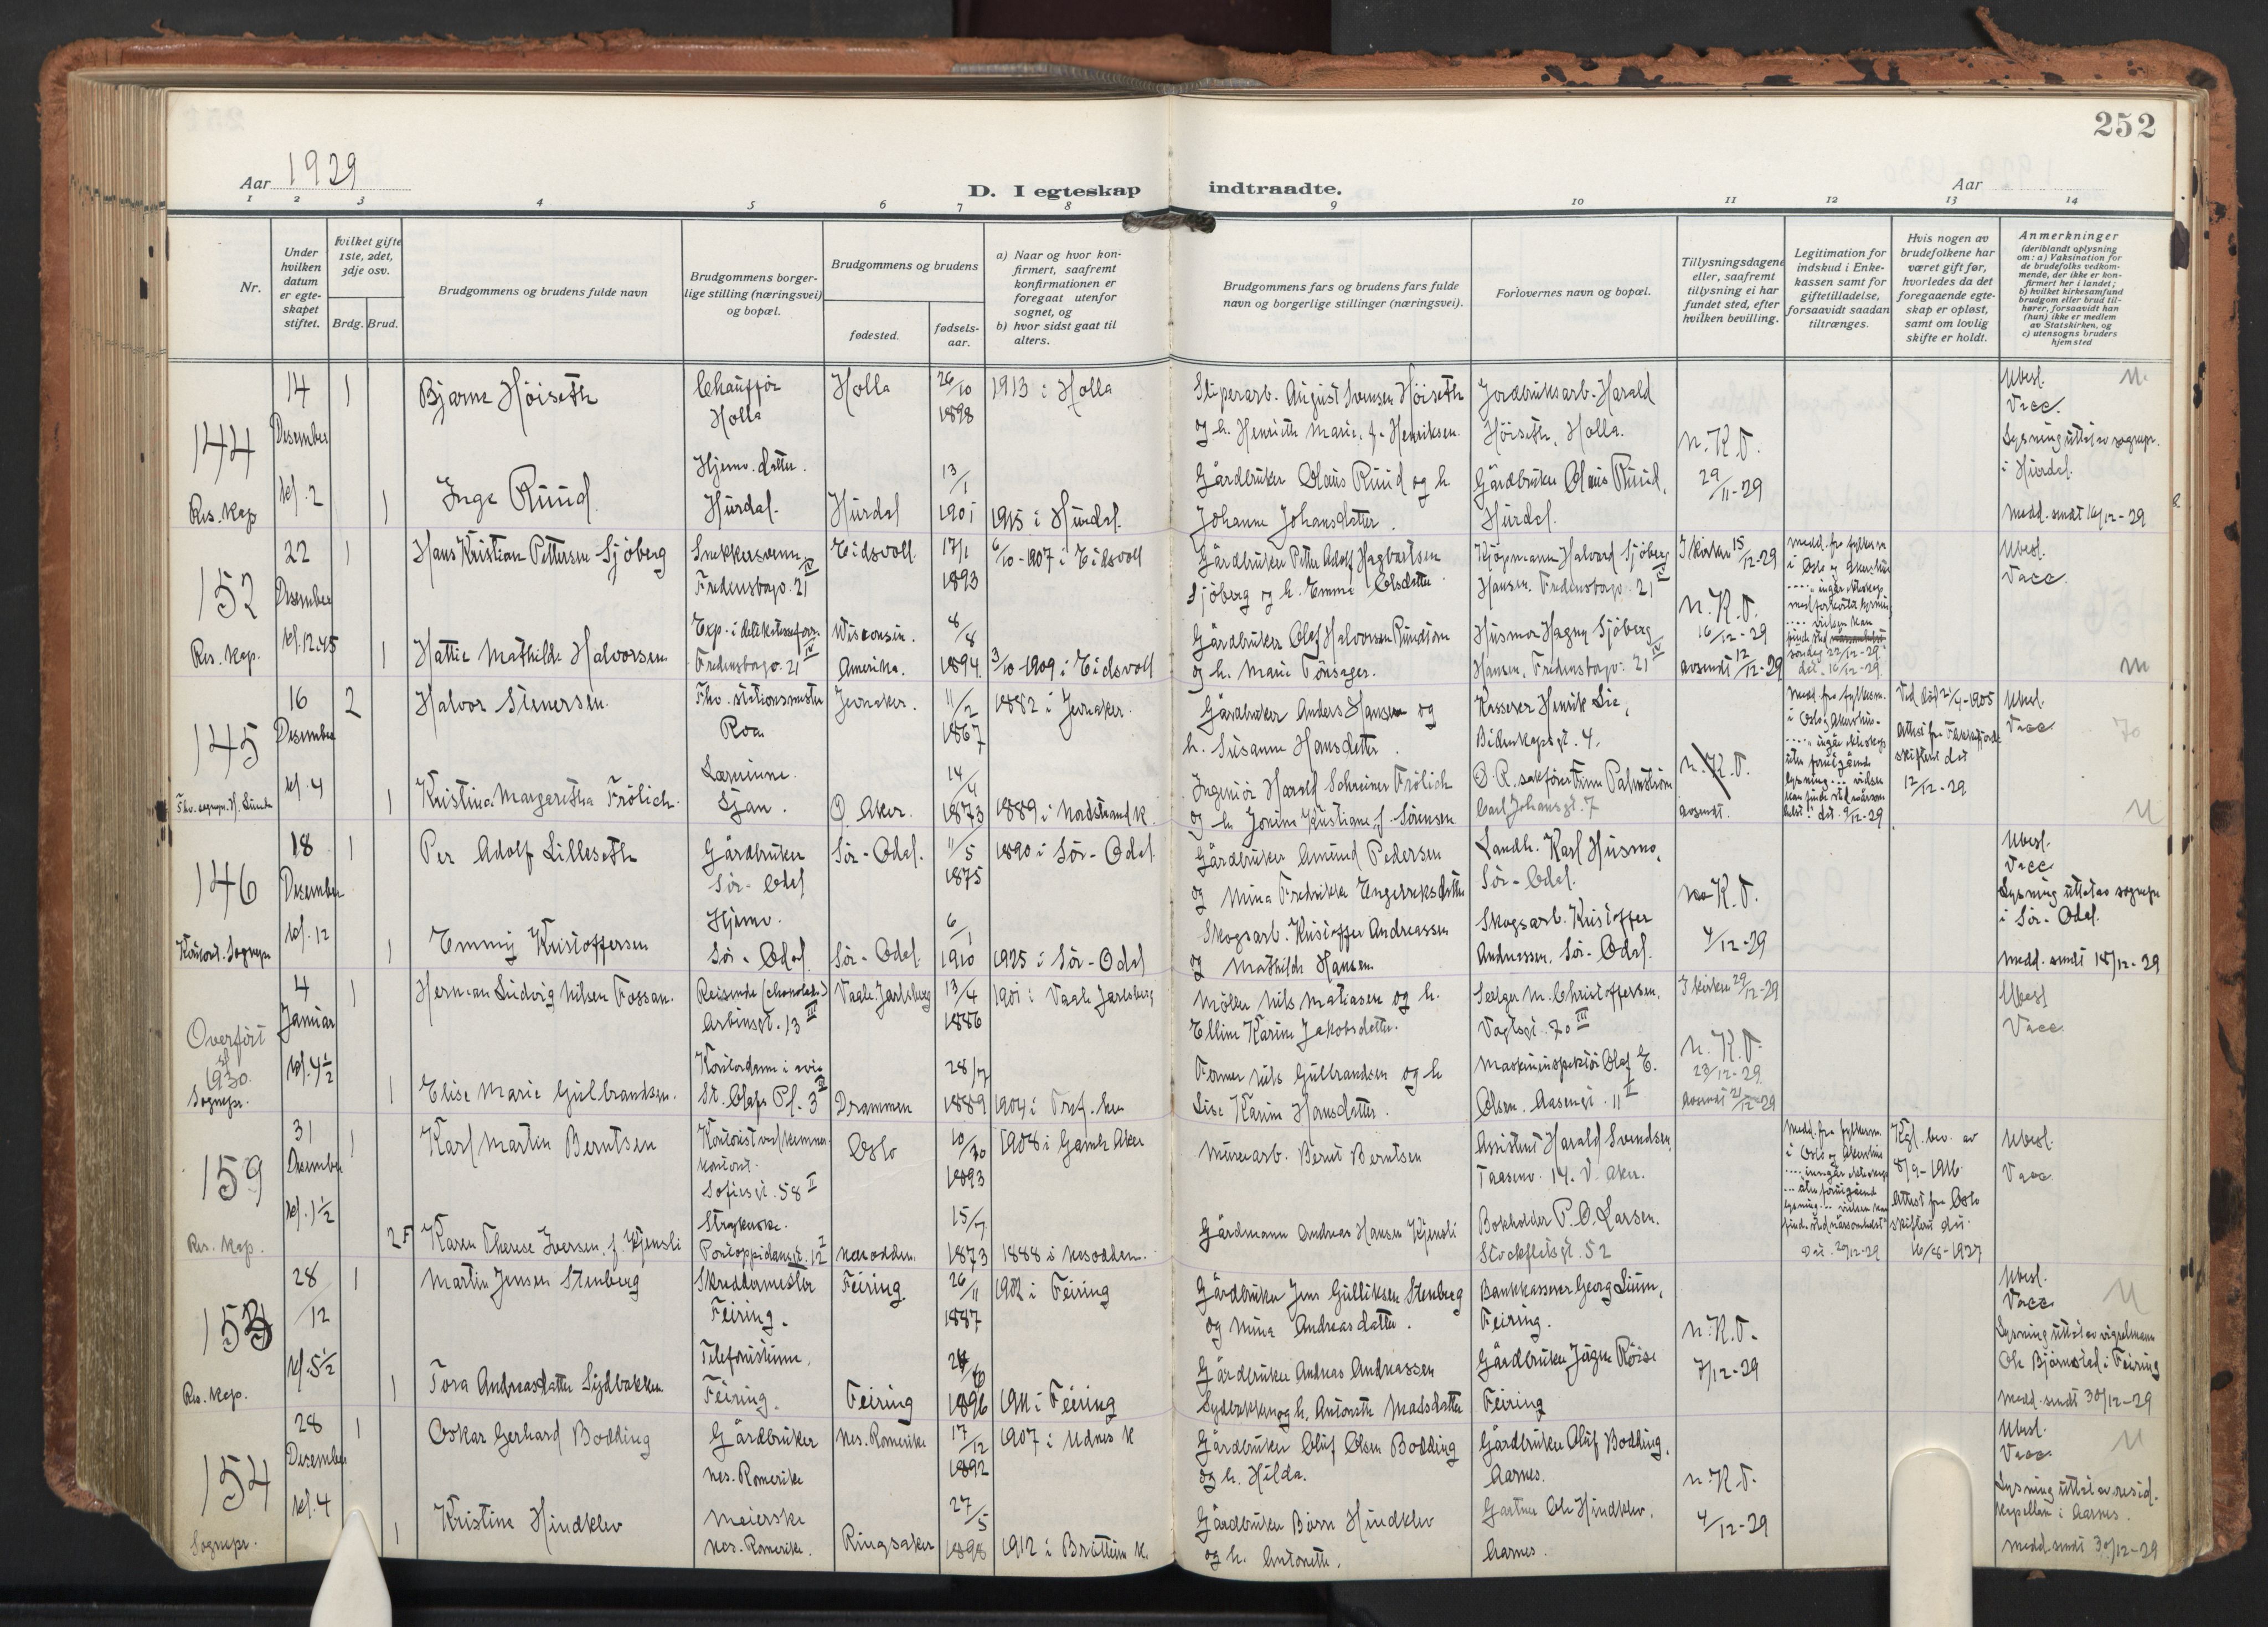 252
Aar 1929
D. I egteskap indtraadte.
Aar
1 2 3 4 5 6 7 8 9 10 11 12 13 14
Nr.
Under hvilken datum er egteskapet stiftet.
hvilket gifte 1ste, 2det, 3dje osv.
Brdg. Brud.
Brudgommens og brudens fulde navn
Brudgommens borgerlige stilling (næringsvei) og bopæl.
Brudgommens og brudens
fødested.
fødselsaar.
a) Naar og hvor konfirmert, saafremt konfirmationen er foregaat utenfor sognet, og
b) hvor sidst gaat til alters.
Brudgommens fars og brudens fars fulde navn og borgerlige stillinger (næringsvei).
Forlovernes navn og bopæl.
Tillysningsdagene eller, saafremt tillysning ei har fundet sted, efter hvilken bevilling.
Legitimation for indskud i Enkekassen samt for giftetilladelse, forsaavidt saadan tiltrænges.
Hvis nogen av brudefolkene har været gift før, hvorledes da det foregaaende egteskap er opløst, samt om lovlig skifte er holdt.
Anmerkninger
(deriblandt oplysning om: a) Vaksination for de brudefolks vedkommende, der ikke er konfirmert her i landet; b) hvilket kirkesamfund brudgom eller brud tilhører, forsaavidt han (hun) ikke er medlem av Statskirken, og c) utensogns bruders hjemsted
144
14 Desember kl. 2
Res. kap
1 Bjarne Höiseth
Chaufför Holla
Holla
26/10 1898
1913 i Holla
Sliperarb. August Svensen Höiseth
og h. Henriette Marie, f. Henriksen.
Jordbruksarb. Harald
Höiseth, Holla.
n. K. F.
29/11-29
Ubesl.
Vacc.
Lysning utført av sognepr.
i Hurdal.
Medd. sendt 16/12-29
1 Inga Ruud
Hjemv. datter.
Hurdal.
Hurdal
13/1 1901
1915 i Hurdal.
Gårdbruker Olaus Ruud og h.
Johanne Johansdatter.
Gårdbruker Olaus Ruud,
Hurdal.
152
22 Desember kl. 12.45
Res. kap.
1 Hans Kristian Pettersen Sjöberg
Snekkersvenn
Fredensborgv. 21 IV
Eidsvoll
17/1 1893
6/10-1907 i Eidsvoll
Gårdbruker Petter Adolf Hagbartsen
Sjöberg og h. Emma Olsdatter
Kjöpmann Halvard Sjöberg
Hansen. Fredensborgv. 21 IV
I kirken 15/12-29
n. K. F.
16/12-29
avsendt 12/12-29
Medd. fra fylkesm.
i Oslo og Akershus
søndag 22/12-29.
dat. 16/12-29.
Ubesl.
Vacc.
1 Hattie Mathilde Halvorsen
Exp. i delikatesseforr.
Fredensborgv. 21 IV
Wisconsin.
Amerika.
8/8 1894
3/10-1909 i Eidsvoll
Gårdbruker Olaf Halvorsen
og h. Marie Tönsager.
Husmor Hagny Sjöberg
Hansen, Fredensborgv. 21 IV
145
16 Desember kl. 4
Fhv. sognepr. H. Lunde
2 Halvor Stenersen.
Fhv. stationsmester
Roa
Jevnaker.
11/2 1867
1882 i Jevnaker.
Gårdbruker Anders Hansen og
h. Susanne Hansdatter.
Kasserer Henrik Lie,
Bidenkapsgt. 4.
n. K. F.
avsendt.
Medd. fra fylkesm.
i Oslo og Akershus
uten foregående
lysning
dat. 9/12-29
Ved død 2/4-1905
skifterett dat
12/12-29
Ubesl.
Vacc
1 Kristina Margaretha Frölich.
Lærerinne.
Ljan.
Ö. Aker.
14/4 1873
1889 i Nordstrand k.
Ingeniör Harald Schreiner Frölich
og h. Jonine Kristiane, f. Sörensen
O. R. sakförer Palmström
Carl Johansgt. 7
146
18 Desember kl. 12
Kontorst. Sognepr
1 Per Adolf Lilleseth
Gårdbruker
Sör-Odal
Sör-Odal.
11/5 1875
1890 i Sör-Odal
Gårdbruker Amund Pedersen
og Mina Fredrikke Engebretsdatter
Landh. Karl Husmo,
Sör-Odal.
n. K. F.
4/12-29
Ubesl.
Vacc
Lysning utført av sognepr
i Sör-Odal.
Medd. sendt 18/12-29
1 Emmy Kristoffersen
Hjemv.
Sör-Odal
Sör-Odal
6/1 1910
1925 i Sör-Odal
Skogsarb. Kristoffer Andreassen
og Mathilde Hansen.
Skogsarb. Kristoffer
Andreassen, Sör-Odal.
Overfört til 1930.
4 Januar kl. 4½
Sognepr.
1 Herman Ludvig Nilsen Fossan.
Reisende (chokolade)
Arbinsgt. 13 III
Vaale Jarlsberg
13/4 1886
1901 i Vaale Jarlsberg
Möller Nils Matiasen og h.
Elline Karine Jakobsdatter.
Selger M. Christoffersen,
Vogtsgt. 70 III
I kirken 29/12-29
n. K. F.
23/12-29
avsendt 21/12-29
Ubesl
Vacc
1 Elise Marie Gulbrandsen.
Kontordame
St. Olafs Pl. 3 II
Drammen
28/7 1889
1904 i Tref. ken
Former Nils Gulbrandsen og h
Lise Karine Hansdatter.
Maskininspektör Olaf E.
Olsen. Aasengt. 11 II
159
31 Desember kl. 1½
Res. kap.
1 Karl Martin Berntsen
Kontorist ved kemnerkontoret.
Sofiesgt. 58 II
Oslo
10/10 1893
1908 i Gamle Aker
Murerarb. Bernt Berntsen
Assistent Harald Svendsen,
Taasenv. 14. V. Aker.
Medd. fra fylkesm.
i Oslo og Akershus
Dat. 20/12-29
Kgl. bev. av
8/9-1916.
Attest fra Oslo
skifterett dat.
16/8-1927
Ubesl.
Vacc
2 F Karen Therese Iversen, f. Kjensli
Strykerske.
Pontoppidansgt. 12 I
Nesodden.
15/7 1873
1888 i Nesodden.
Gårdmann Andreas Hansen Kjensli
Bokholder P. O. Larsen.
Stockfletsgt. 52
153
28/12 kl. 5½
Res. kap.
1 Martin Jensen Stenberg
Skreddermester
Feiring.
Feiring.
26/11 1887
1902 i Feiring
Gårdbruker Jens Gulliksen Stenberg
og Mina Andreasdatter.
Bankkasserer Georg Lium,
Feiring.
n. K. F.
7/12-29
Ubesl.
Vacc
Lysning utført av vigselmann
Ole Björnstad i Feiring
Medd. sendt 30/12-29
1 Tora Andreasdatter Sydbakken
Telefonistinne,
Feiring.
Feiring
24/6 1896
1911 i Feiring
Gårdbruker Andreas Andreassen
Sydbakken og h. Antonette Madsdatter
Gårdbruker Jörgen Röise
Feiring
154
28 Desember kl. 4
Sognepr.
1 Oskar Gerhard Bodding
Gårdbruker
Nes. Romerike
Nes. Romerike
17/12 1892
1907 i Udnes k
Gårdbruker Oluf Olsen Bodding
og h. Hilda.
Gårdbruker Oluf Bodding,
Aarnes.
n. K. F.
4/12-29
Ubesl.
Vacc.
Lysning utført av resid.
kapellan i Aarnes.
Medd. sendt 30/12-29
1 Kristine Hindklev
Meierske
Nes. Romerike.
Ringsaker
27/5 1898
1912 i Brøttum k.
Gårdbruker Börre Hindklev
og h. Antonette.
Gartner Ole Hindklev,
Aarnes.